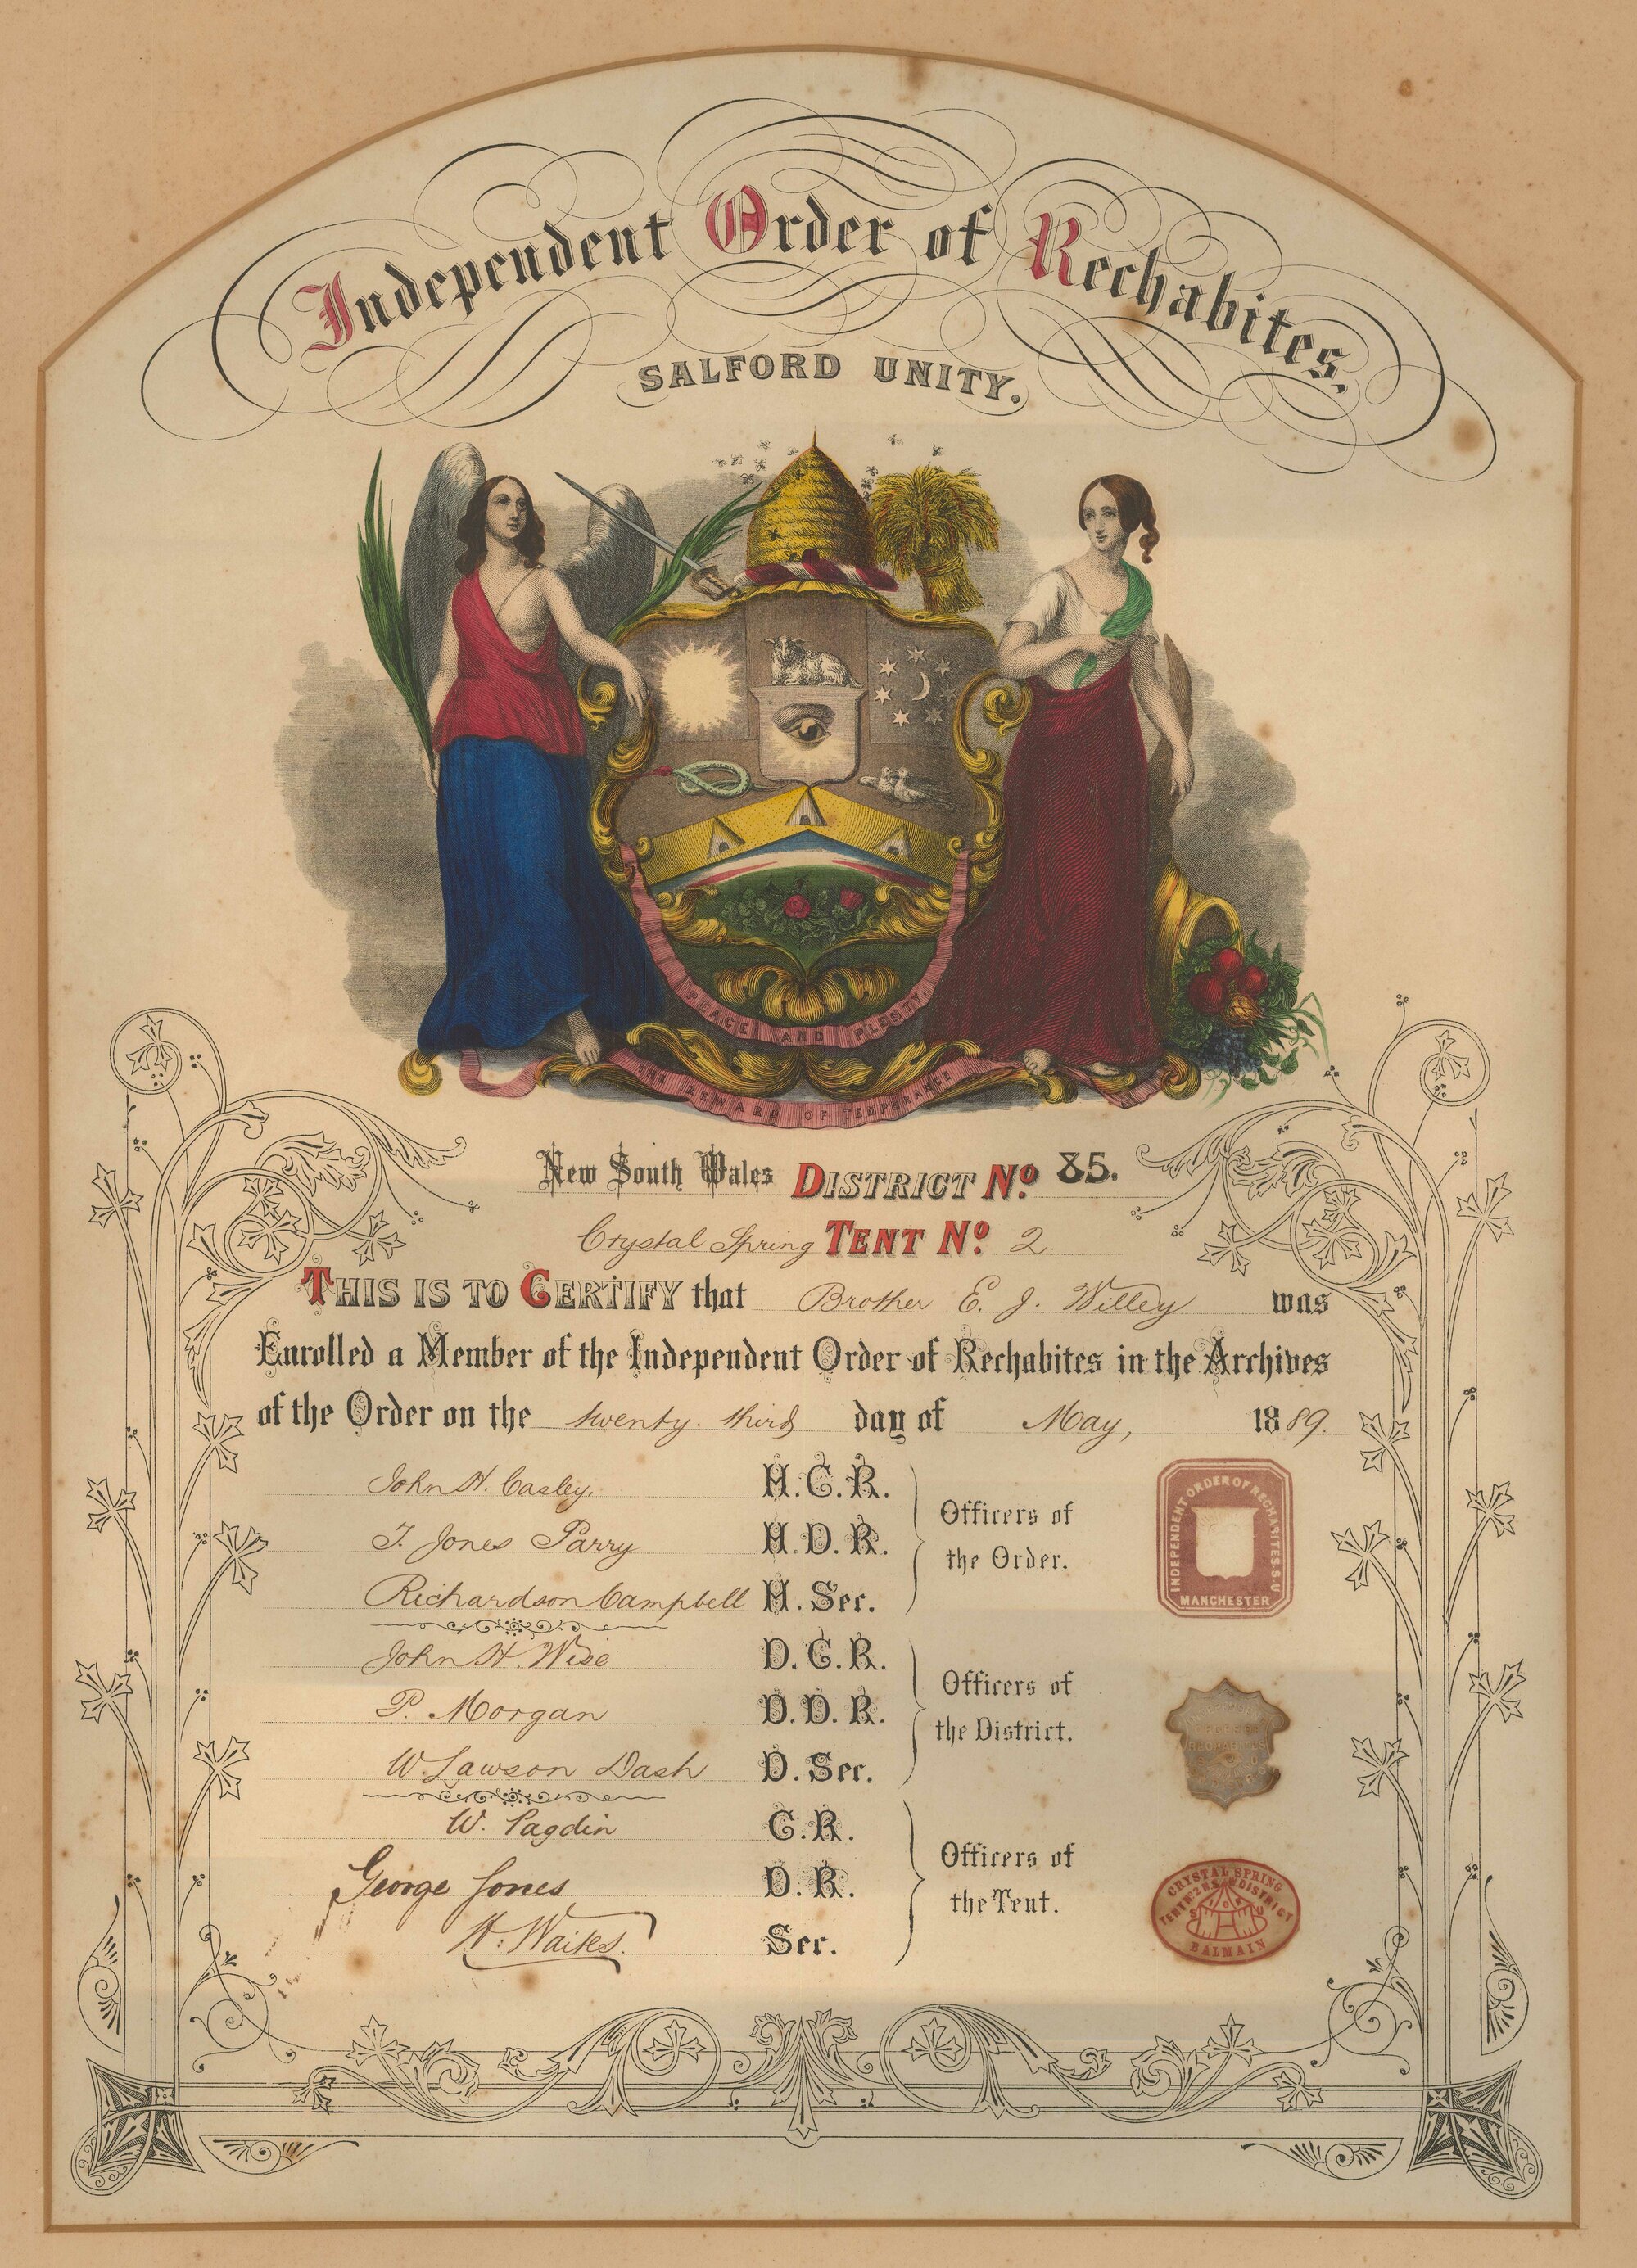 Independent Order of Rechabites,
SALFORD UNITY.
PEACE AND PLENTY.
THE REWARD OF TEMPERANCE
New South Wales DISTRICT No. 85.
Crystal Spring TENT No. 2.
THIS IS TO CERTIFY that Brother E. J. Willey was
Enrolled a Member of the Independent Order of Rechabites in the Archives
of the Order on the twenty third day of May, 1889.
John H. Casley. H.C.R.
T. Jones Parry H.D.R.
Richardson Campbell H. Sec.
Officers of
the Order.
INDEPENDENT ORDER OF RECHABITES S.U
MANCHESTER
John H. Wise D.C.R.
P. Morgan D.D.R.
W. Lawson Dash D. Sec.
Officers of
the District.
W. Pagdin C.R.
George Jones D.R.
H. Waites. Sec.
Officers of
the Tent.
CRYSTAL SPRING
TENT No 2 N.S.W. DISTRICT
BALMAIN